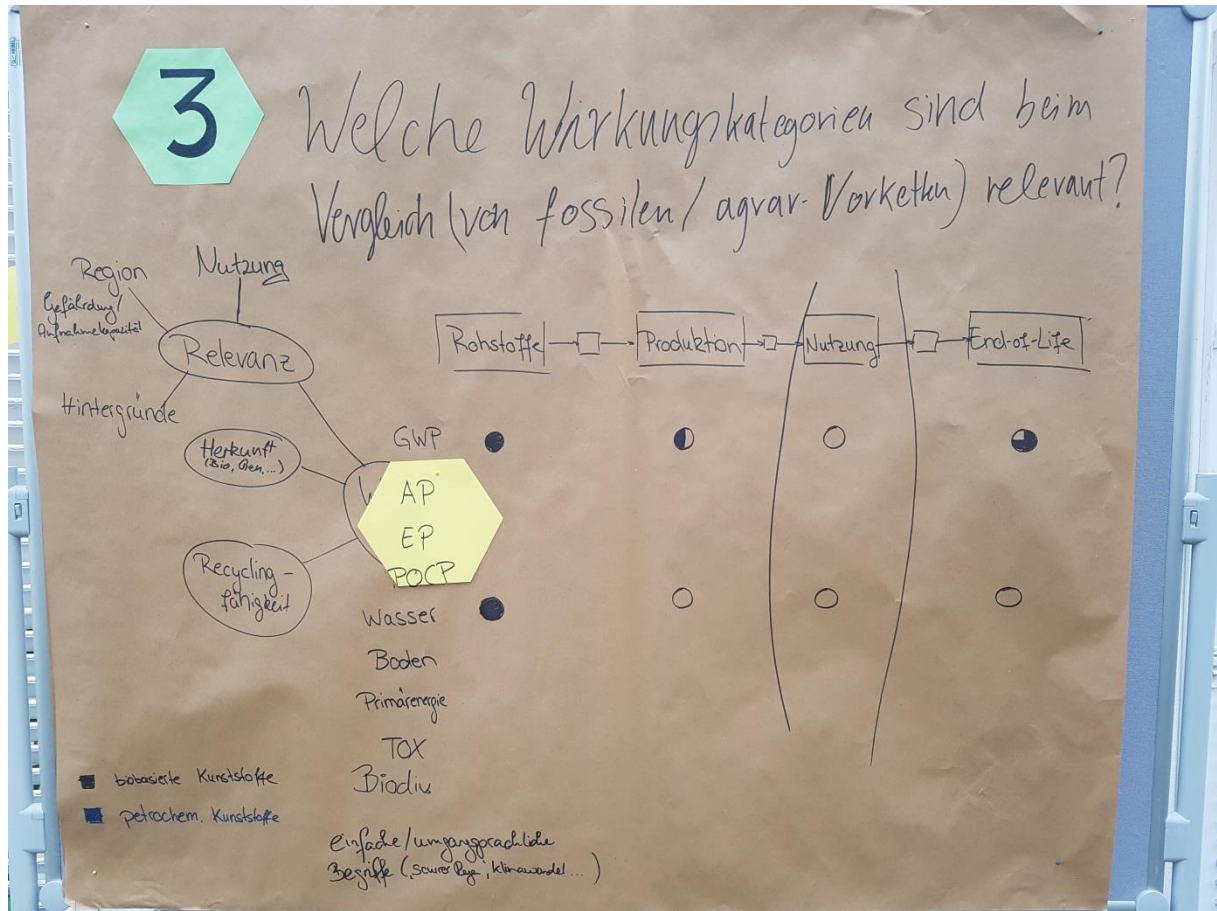 3
Welche Wirkungskategorien sind beim
Vergleich (von fossilen / agrar-Vorketten) relevant?
Region
Nutzung
Gefährdung/
Aufnahmekapazität
Relevanz
Hintergründe
Herkunft
(Bio, Gen, ...)
Recycling-
fähigkeit
Rohstoffe
Produktion
Nutzung
End-of-Life
GWP
W
AP
EP
POCP
Wasser
Boden
Primärenergie
TOX
Biodiv
biobasierte Kunststoffe
petrochem. Kunststoffe
einfache/umgangsprachliche
Begriffe (saurer Rege, klimawandel...)